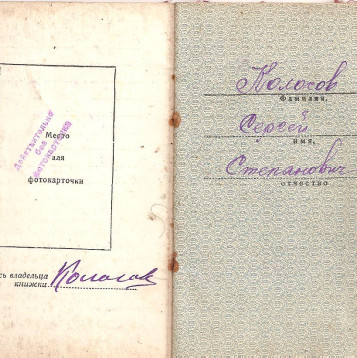 Место
для
фотокарточки
Действительно
без
фотокарточки
сь владельца
книжки Колосов
Колосов
Фамилия,
Сергей
имя,
Степанович
отчество